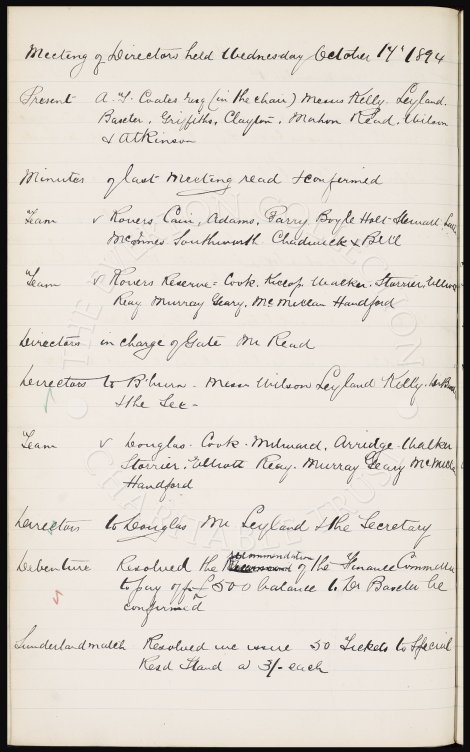 Meeting of Directors held Wednesday October 17th 1894
Present A. T. Coates Esq (in the chair) Messrs Kelly. Leyland.
Baxter, Griffiths, Clayton, Mahon Read, Wilson
& Atkinson
Minutes of last Meeting read & confirmed
Team v Rovers Cain, Adams, Parry Boyle Holt Stewart
McInnes Southworth Chadwick & Bell
Team v Rovers Reserve = Cook. Walker. Storrier, Elliott
Reay Murray Geary. McMillan Handford
Directors in charge of Gate Mr Read
Directors to B'burn - Messrs Wilson Leyland Kelly.
& the Sec -
Team v Douglas. Cook. Milward, Arridge Walker
Storrier, Elliott Reay. Murray Geary McMillan
Handford
Directors to Douglas Mr Leyland & the Secretary
Debenture Resolved the recommendation of the Finance Committee
to pay off £500 balance to Dr Baxter be
confirmed
Sunderland match Resolved we issue 50 Tickets to Special
Resd Stand @ 3/- each
© THE EVERTON COLLECTION
CHARITABLE TRUST